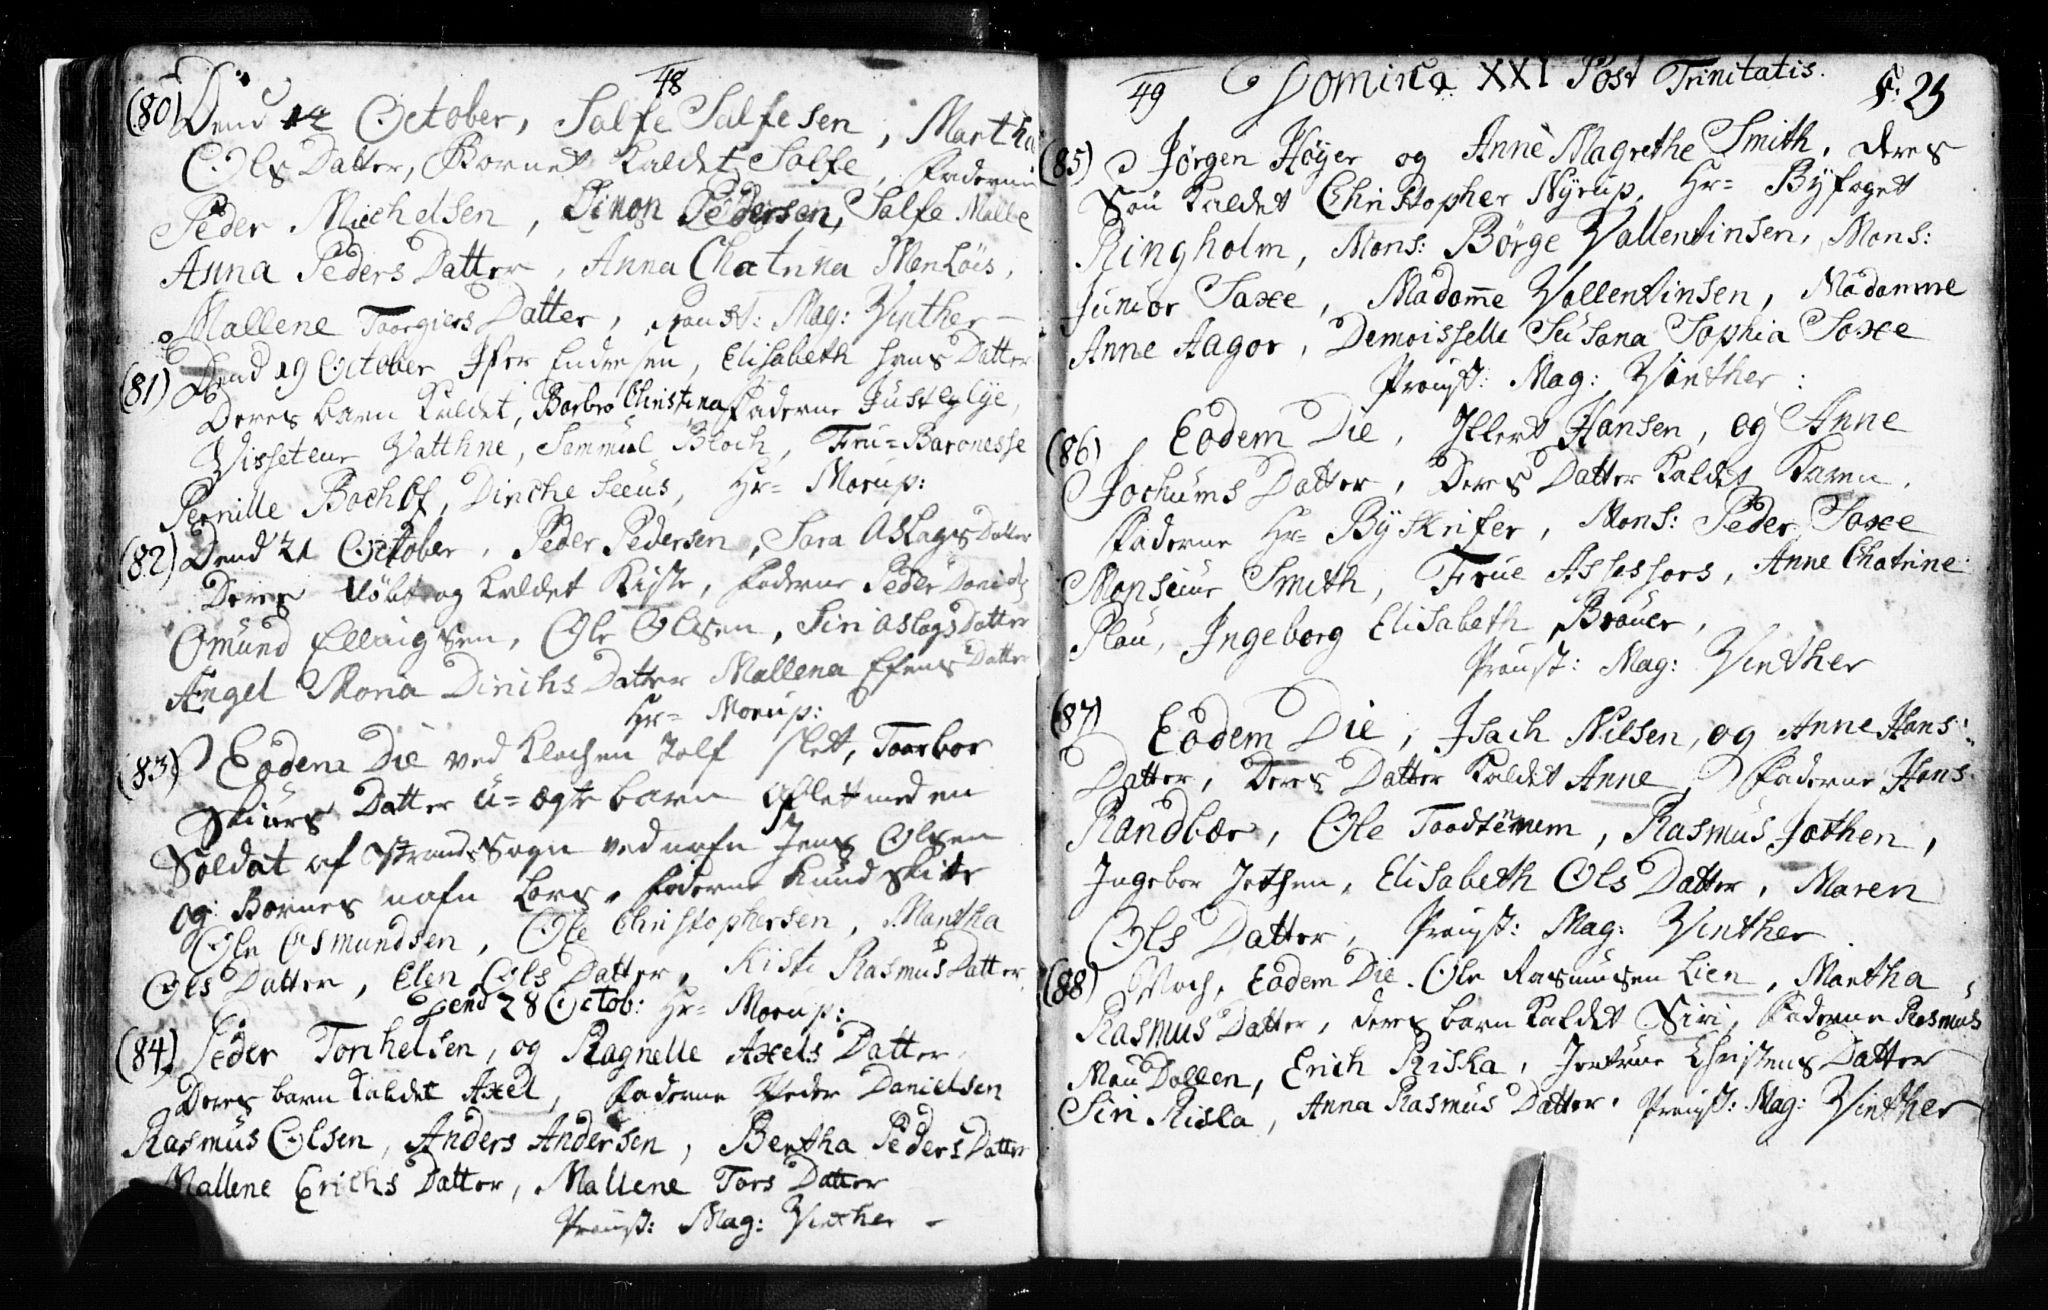 48
(80) Dend 14 October, Salfe Salfesen, Martha
Ols Datter, Barnet Kaldet Salfe, Faderne
Peder Michelsen, Simon Pedersen, Salfe Malle
Anna Peders Datter, Anna Chatrina MonLöis,
Mallene Taargiers Datter, Proust: Mag: Vinther –
(81) Dend 19 October Ifer Endresen, Elisabeth Hans Datter
Deres barn Kaldet, Barbro Christina Faderne Just Lye,
Visseteur Vatthne, Sammul Bloch, Fru= Baronesse
Pernille Bochof, Dirche Seeus, Hr= Morup:
(82) Dend 21 October, Peder Pedersen, Sara Aslags Datter
Deres döbt og Kaldet Kiste, Faderne Peder Daniels
Omund Ellingsen, Ole Olsen, Siri Aslags Datter
Angel Maria Dirichs Datter Mallena Efens Datter
Hr= Morup:
(83) Eodem Die ved Klochen Tolf Slet, Taarbor
Skiürs Datter ü=ægte barn aflet med en
Soldat af Strands Sogn ved nafn Jens Olsen
og Barnes nafn Lars, Faderne Knud Skitte
Ole Osmundsen, Ole Christophersen, Martha
Ols Datter, Elen Ols Datter, Kiste Rasmus Datter,
Hr= Morup:
Dend 28 Octob:
(84) Peder Torchelsen, og Ragnelle Axels Datter,
Deres barn Kaldet Axel, Faderne Peder Danielsen
Rasmus Olsen, Anders Andersen, Bertha Peders Datter
Mallene Erichs Datter, Mallene Tors Datter
Proust: Mag: Vinther –
49 Dominica XXI Post Trinitatis. F: 25
(85) Jørgen Höyer og Anne Magrethe Smith, deres
Søn Kaldet Christopher Nyrup, Hr= Byfoget
Ringholm, Mons: Börge Vallentinsen, Mons:
Junior Saxe, Madame Vallentinsen, Madamme
Anne Aagor, Demoisselle Susana Sophia Saxe
Proust: Mag: Vinther:
(86) Eodem Die, Illert Hansen, og Anne
Jochums Datter, Deres Datter Kaldet Karen,
Faderne Hr= Byskrifer, Mons: Peder Saxe
Monseiur Smith, Frue Assessors, Anne Chatrine
Plau, Ingeborg Elisabeth Brouer,
Proust: Mag: Vinther
(87) Eodem Die, Isach Nilsen, og Anne Hans:
Datter, Deres Datter Kaldet Anne, Faderne Hans
Randbær, Ole, Rasmus Jothen,
Ingebor Jothen, Elisabeth Ols Datter, Maren
Ols Datter, Proust: Mag: Vinther
(88) Noch, Eodem Die. Ole Rasmusen Lien, Martha
Rasmus Datter, deres barn Kaldet Siri, Faderne Rasmus
Mau Dallen, Erich Riska, Jertrue Christens Datter
Siri Riska, Anna Rasmus Datter. Proust: Mag: Vinther